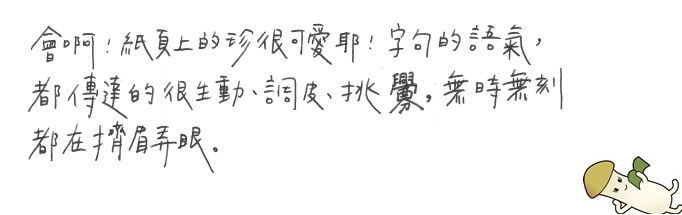 會啊！紙頁上的珍很可愛耶！字句的語氣，
都傳達的很生動、調皮、挑釁，無時無刻
都在擠眉弄眼。